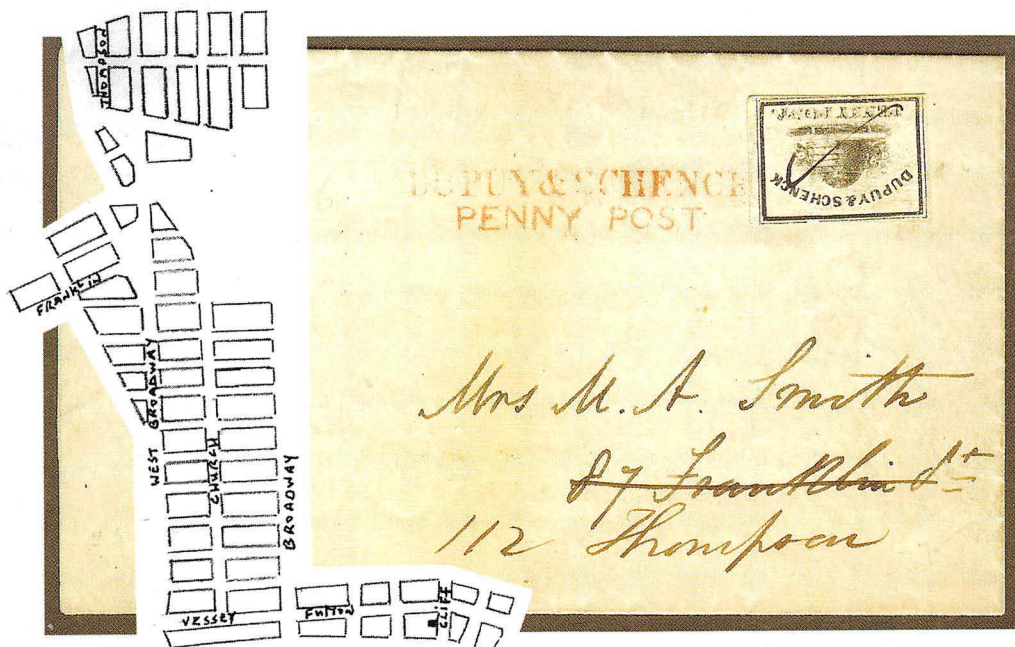 THOMPSON
FRANKLIN
WEST BROADWAY
CHURCH
BROADWAY
VESSEY
FULTON
CLIFF
DUPUY & SCHENCK
PENNY POST
PENNY POST,
DUPUY & SCHENCK
Mrs M. A. Smith
87 Franklin St
112 Thompson